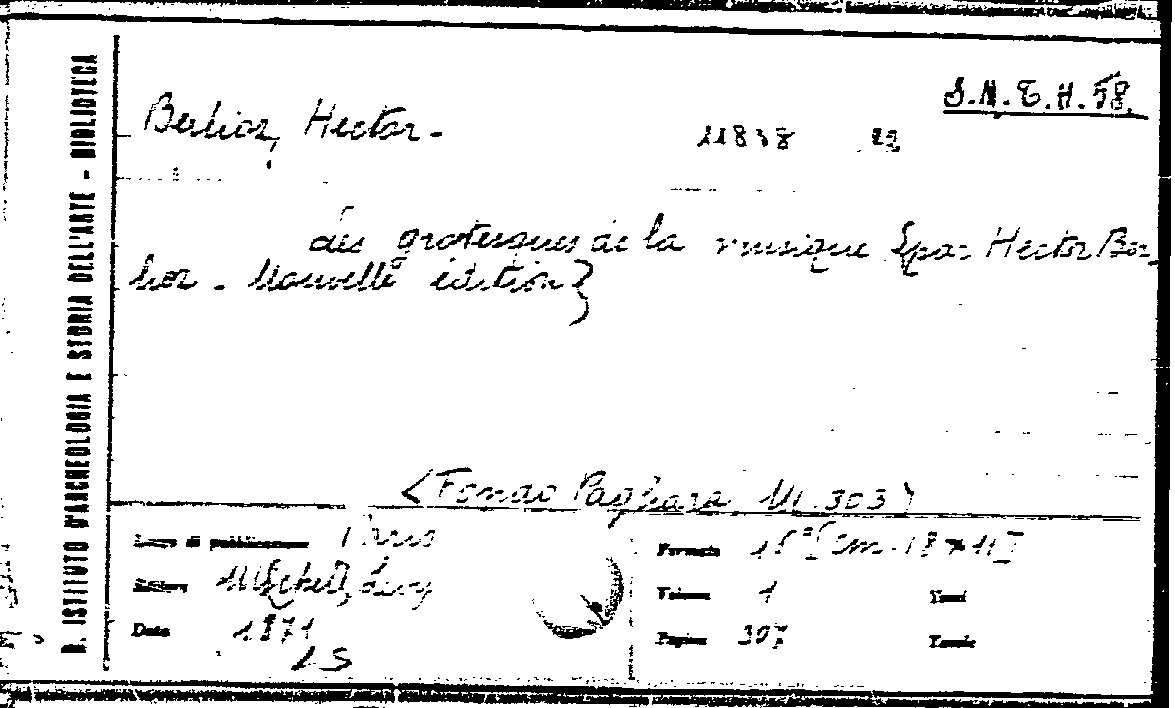 R. ISTITUTO D'ARCHEOLOGIA E STORIA DELL'ARTE - BIBLIOTECA
Berlioz, Hector -
11838
Les grotesques de la musique [par Hector Ber-
lioz - Nouvelle édition}
<Fondo Pagliara, M. 303>
Luogo di pubblicazione Paris
Editore Michel, Levy
Data 1871
LS
Formato [cm. 18 x 11]
Volume 1 Tomi
Pagine 307 Tavole